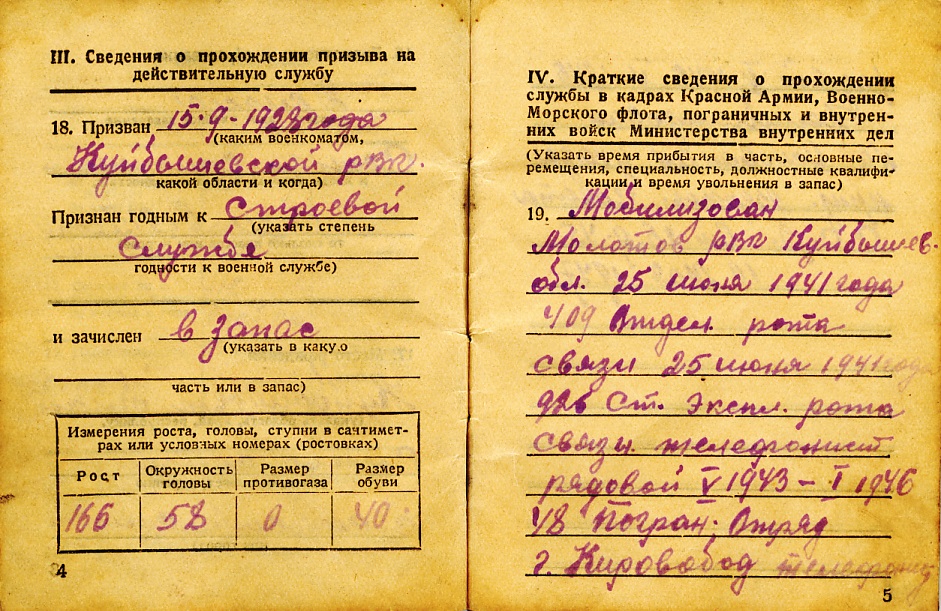 III. Сведения о прохождении призыва на
действительную службу
18. Призван 15·9-1928 года
(каким военкоматом,
Куйбышевской рвк.
какой области и когда)
Признан годным к строевой
(указать степень
службе
годности к военной службе)
и зачислен в запас
(указать в каку.о
часть или в запас)
Измерения роста, головы, ступни в сантимет-
рах или условных номерах (ростовках)
Рост Окружность головы Размер противогаза Размер обуви
166 58 0 40
4
IV. Краткие сведения о прохождении
службы в кадрах Красной Армии, Военно-
Морского флота, пограничных и внутрен-
них войск Министерства внутренних дел
(Указать время прибытия в часть, основные пе-
ремещения, специальность, должностные квалифи-
кации и время увольнения в запас)
19. Мобилизован
Молотов рвк Куйбышев.
обл. 25 июня 1941 года
409 Отдел. рота
связи 25 июня 1941 года
926 Ст. Экспл. рота
связи телефонист
рядовой V 1943 – I 1946
48 Погран. Отряд
г. Кировабод телефонист
5